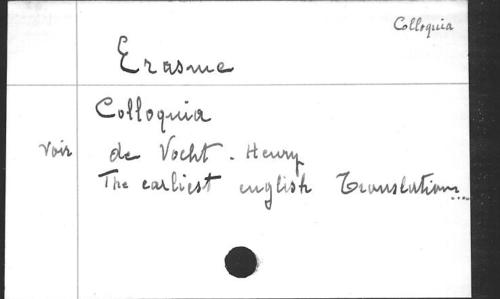 Colloquia
Erasme
Colloquia
Voir de Vocht. Henry
The earliest english Translations...